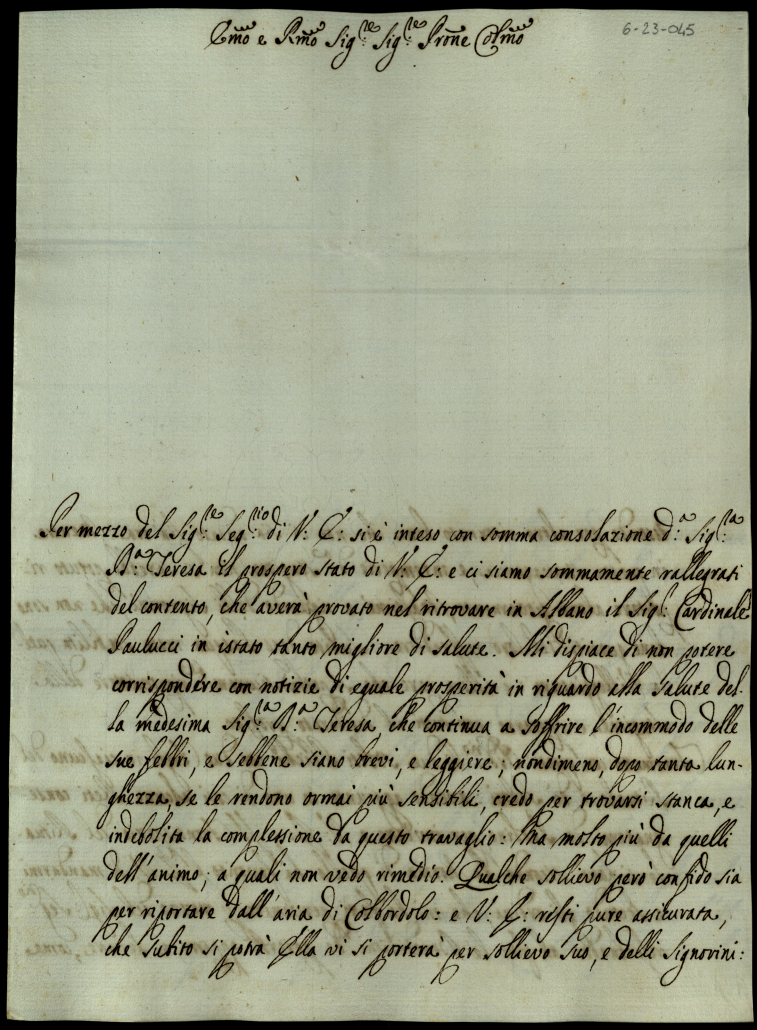 Emo e Rmo Sig:re Sig:re Prone Colmo
6-23-045
Per mezzo del Sig:re Seg:rio di V: E: si è inteso con somma consolazione d:a Sig:ra
B:a Teresa il prospero stato di V: E: e ci siamo sommamente rallegrati
del contento, che averà provato nel ritrovare in Albano il Sig: Cardinale
Paulucci in istato tanto migliore di salute. Mi dispiace di non potere
corrispondere con notizie di eguale prosperità in riguardo alla salute del-
la medesima Sig:ra B:a Teresa, che continua a soffrire l'incommodo delle
sue febbri, e sebbene siano brevi, e leggiere; nondimeno, dopo tanta lun-
ghezza, se le rendono ormai più sensibili, credo per trovarsi stanca, e
indebolita la complessione da questo travaglio: Ma molto più da quelli
dell'animo; a quali non vedo rimedio. Qualche sollievo però confido sia
per riportare dall'aria di Colbordolo: e V: E: resti pure assicurata,
che subito si potrà Ella vi si porterà per sollievo suo, e delli Signorini: